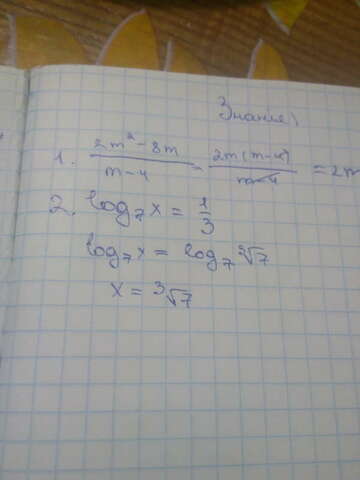 Знания
1. (2m² - 8m)/(m-4) = 2m(m-4)/(m-4) = 2m
2. log₇x = 1/3
log₇x = log₇ ∛7
x = ³√7